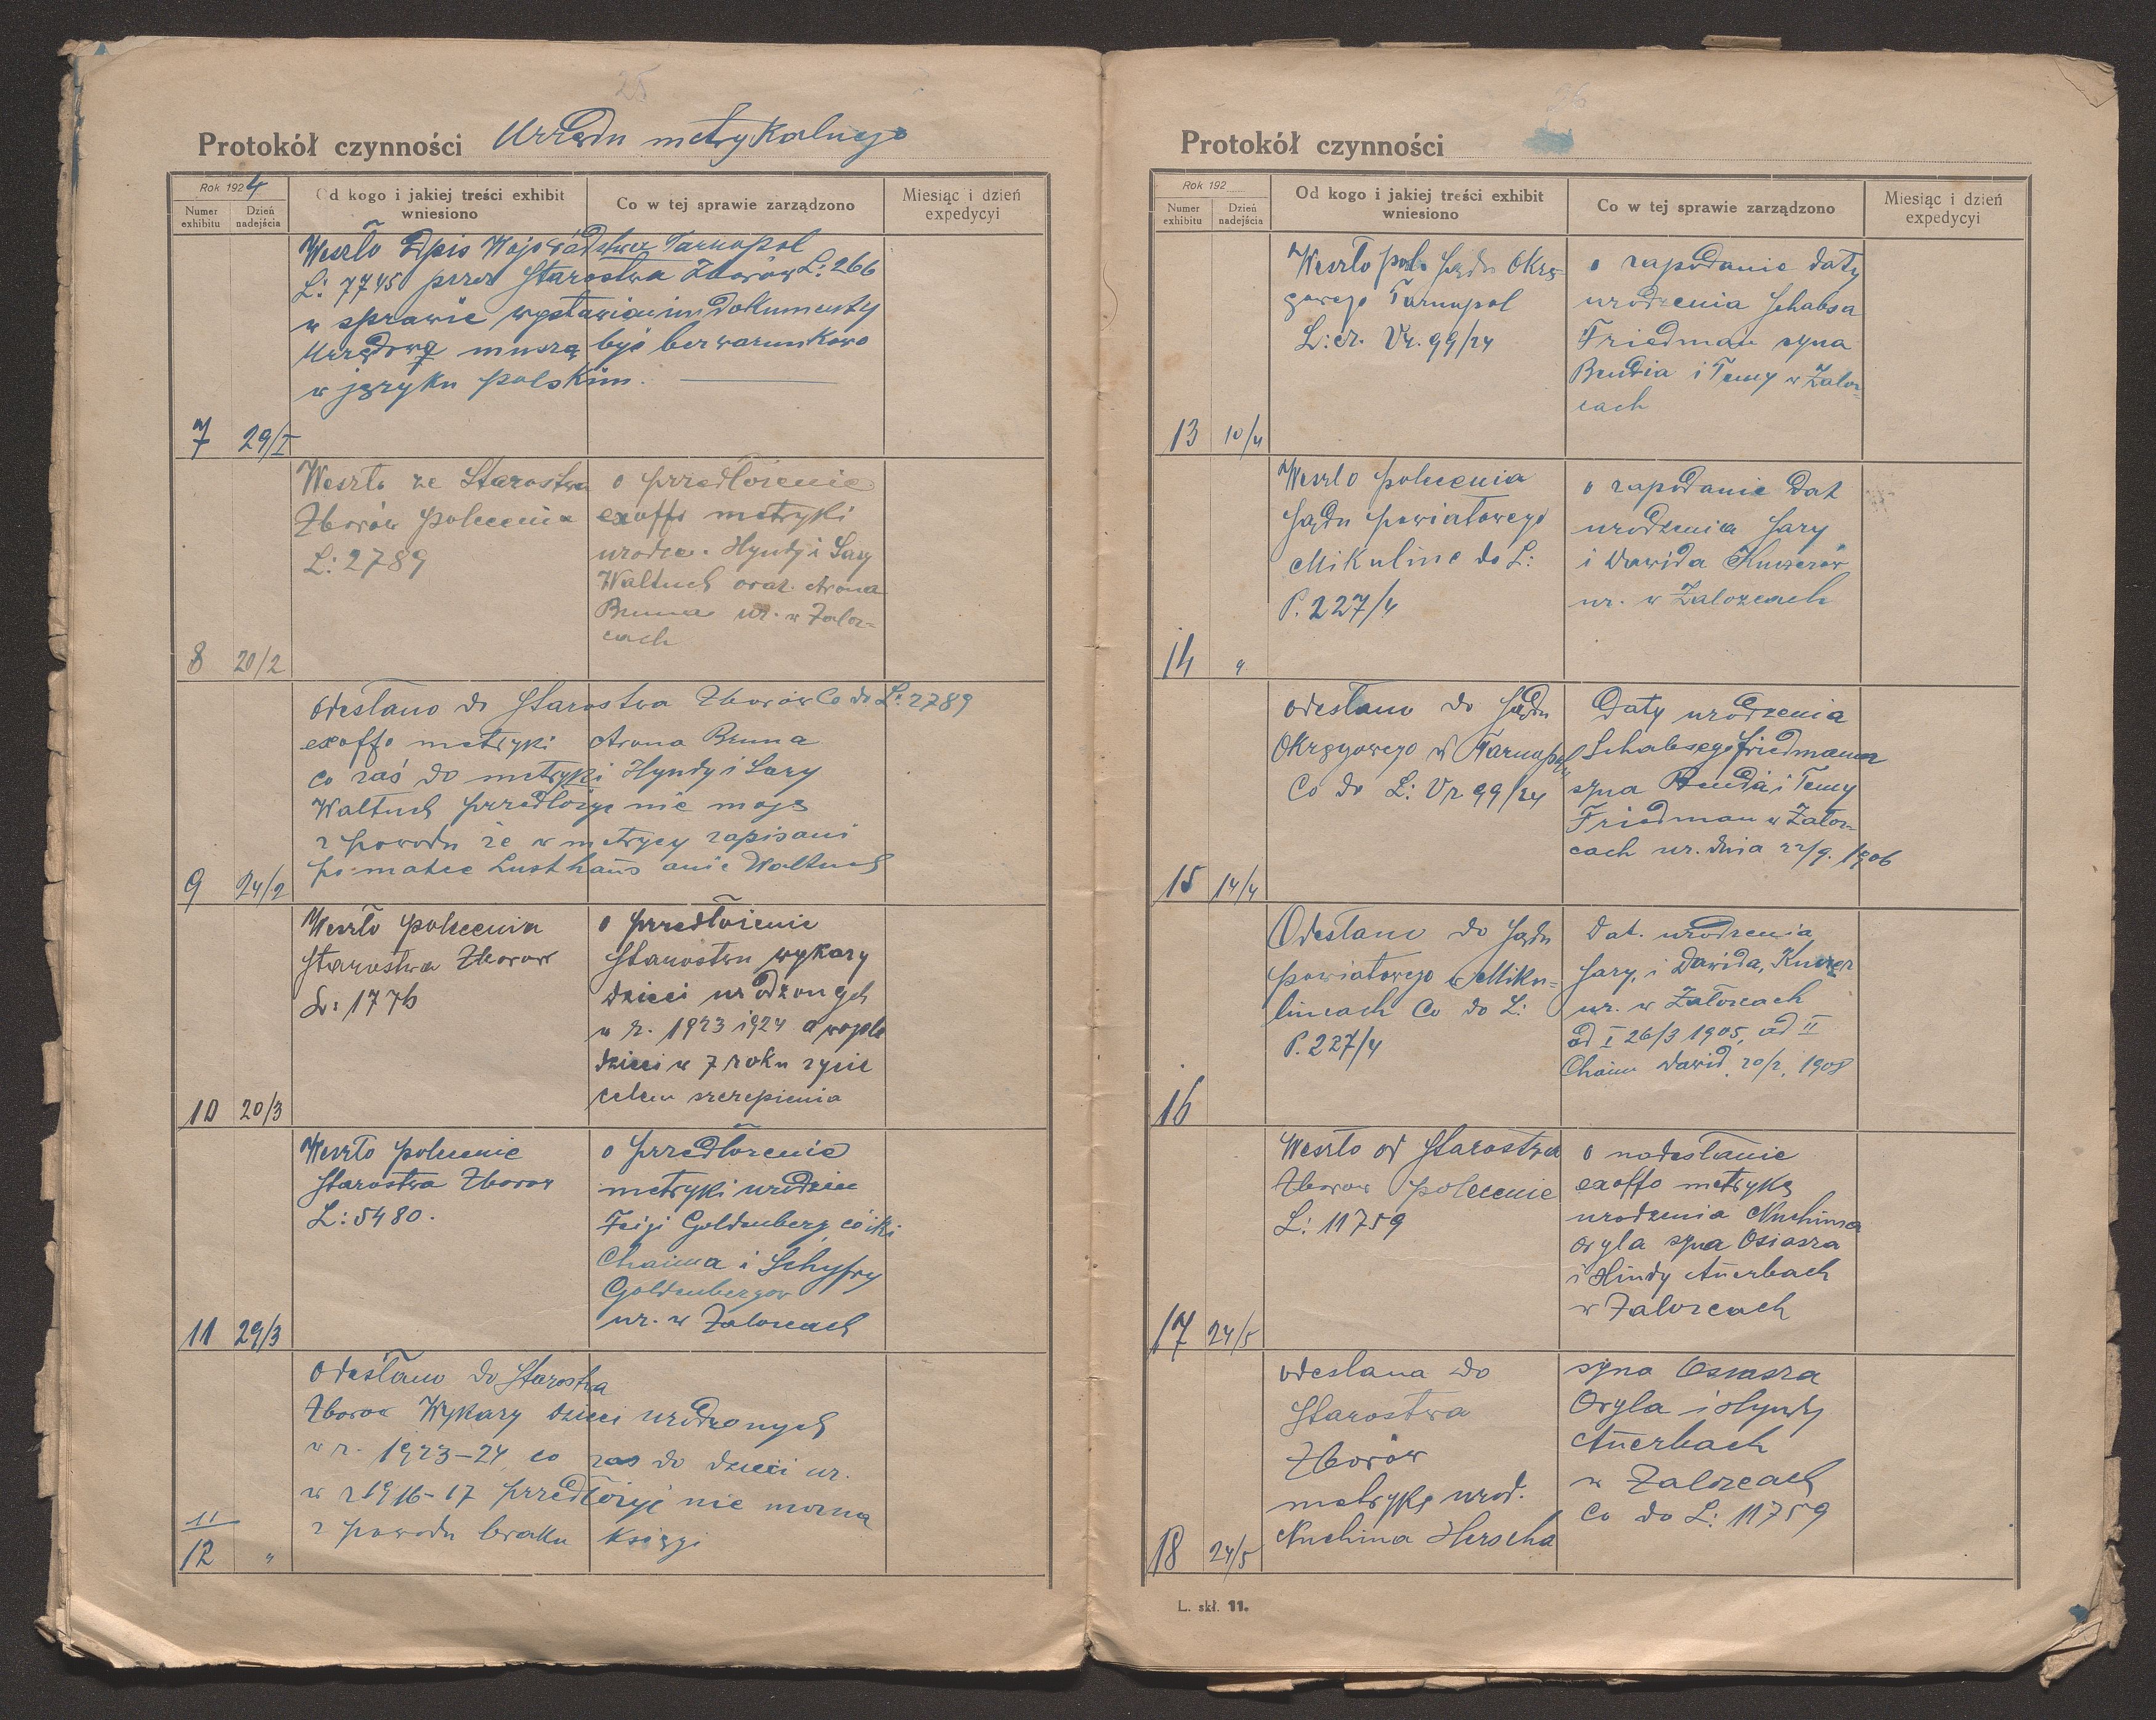 25
Protokół czynności Urzędu metrykalnego
Rok 1924
Numer exhibitu
Dzień nadejścia
Od kogo i jakiej treści exhibit wniesiono
Co w tej sprawie zarządzono
Miesiąc i dzień expedycyi
Weszło Opis Wojewódstwa Tarnopol
L: 7745 przez Starostwa Zborów L: 266
w sprawie wystawieniu Dokumenty
Urzędową muszą być bezwarunkowo
w języku polskim.
7 29/I
Weszło ze Starostwa
Zborów polecenia
L: 2789
o przedłożenie
exoffo metryki
urodze. Hyndy i Sary
Waltuch oraz. Arona
Bruna ur. w Załoz=
cach
8 20/2
Odesłano do Starostwa Zborów Co do L: 2789
exoffo metryki Arona Bruna
co zaś do metryki Hyndy i Sary
Waltuch przedłożyć nie mogę
z powodu że w metrycy zapisani
po matce Lusthaus anie Waltuch
9 24/2
Weszło polecenia
Starostwa Zborow
L: 1776
o przedłożenie
Starostwu wykazy
dzieci urodzonych
w r. 1923 1924 a wogole
dzieci w 7 roku zycie
celem szczepienia
10 20/3
Weszło polecenie
Starostwa Zborow
L: 5480.
o przedłożenie
metryki urodzin
Feigi Goldenberg córki
Chaima i Schyfry
Goldenbergow
ur. w Załozcach
11 29/3
Odesłano do Starostwa
Zborow Wykazy dzieci urodzonych
w r. 1923-24, co zas do dzieci ur.
w r 1916-17 przedłożyć nie mozna
z powodu braku Księgi
11
12 "
26
Protokół czynności
Rok 192
Numer exhibitu
Dzień nadejścia
Od kogo i jakiej treści exhibit wniesiono
Co w tej sprawie zarządzono
Miesiąc i dzień expedycyi
Weszło pole Sądu Okrę-
gowego Tarnopol
L: cz. Vr. 99/24
o zapodanie daty
urodzenia Schabsa
Friedman syna
Bendia i Temy w Załoz=
cach
13 10/4
Weszlo polecenia
Sądu powiatowego
Mikulinc do L:
P. 227/4
o zapodanie dat
urodzenia Sary
i Dawida Kurzerów
ur. w Załozcach
14 "
Odesłano do Sądu
Okręgowego w Tarnopol
Co do L: Vr 99/24
Daty urodzenia
Schabsego Friedmana
syna Bendia i Temy
Friedman w Załoz-
cach ur. dnia 22/9. 1906
15 14/4
Odesłano do Sądu
powiatowego w Miku=
lincach Co do L:
P. 227/4
Dat. urodzenia
Sary, i Dawida, Kurzer
ur. w Załozcach
od I 26/3 1905, od II
Chaim Dawid 20/2. 1908
16
Weszło od Starostwa
Zborow polecenie
L: 11759
o nadesłanie
exoffo metrykę
urodzenia Nuchima
Orgla syna Osiasza
i Hindy Auerbach
w Załozcach
17 24/5
odesłana do
Starostwa
Zborów
metrykę urod.
Nuchima Herscha
syna Osiasza
Orgla i Hyndy
Auerbach
w Załozcach
Co do L: 11759
18 24/5
L. skł. 11.